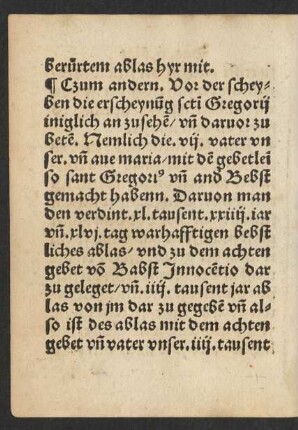 berürtem ablas hyr mit.
¶ Czum andern. Vor der schey-
ben die erscheynūg scti Gregorij
iniglich an zusehē/ vñ daruor zu
betē. Nemlich die. vij. vater vn
ser. vñ aue maria/ mit dē gebetlei
so sant Gregori⁹ vñ and Bebst
gemacht habenn. Daruon man
den verdint. xl. tausent. xxiiij. iar
vñ. xlvj. tag warhafftigen bebst
liches ablas/ vnd zu dem achten
gebet vō Babst Jnnocētio dar
zu geleget/ vñ. iiij. tausent jar ab
las von jm dar zu gegebē vñ al-
so ist des ablas mit dem achten
gebet vñ vater vnser. iiij. tausent